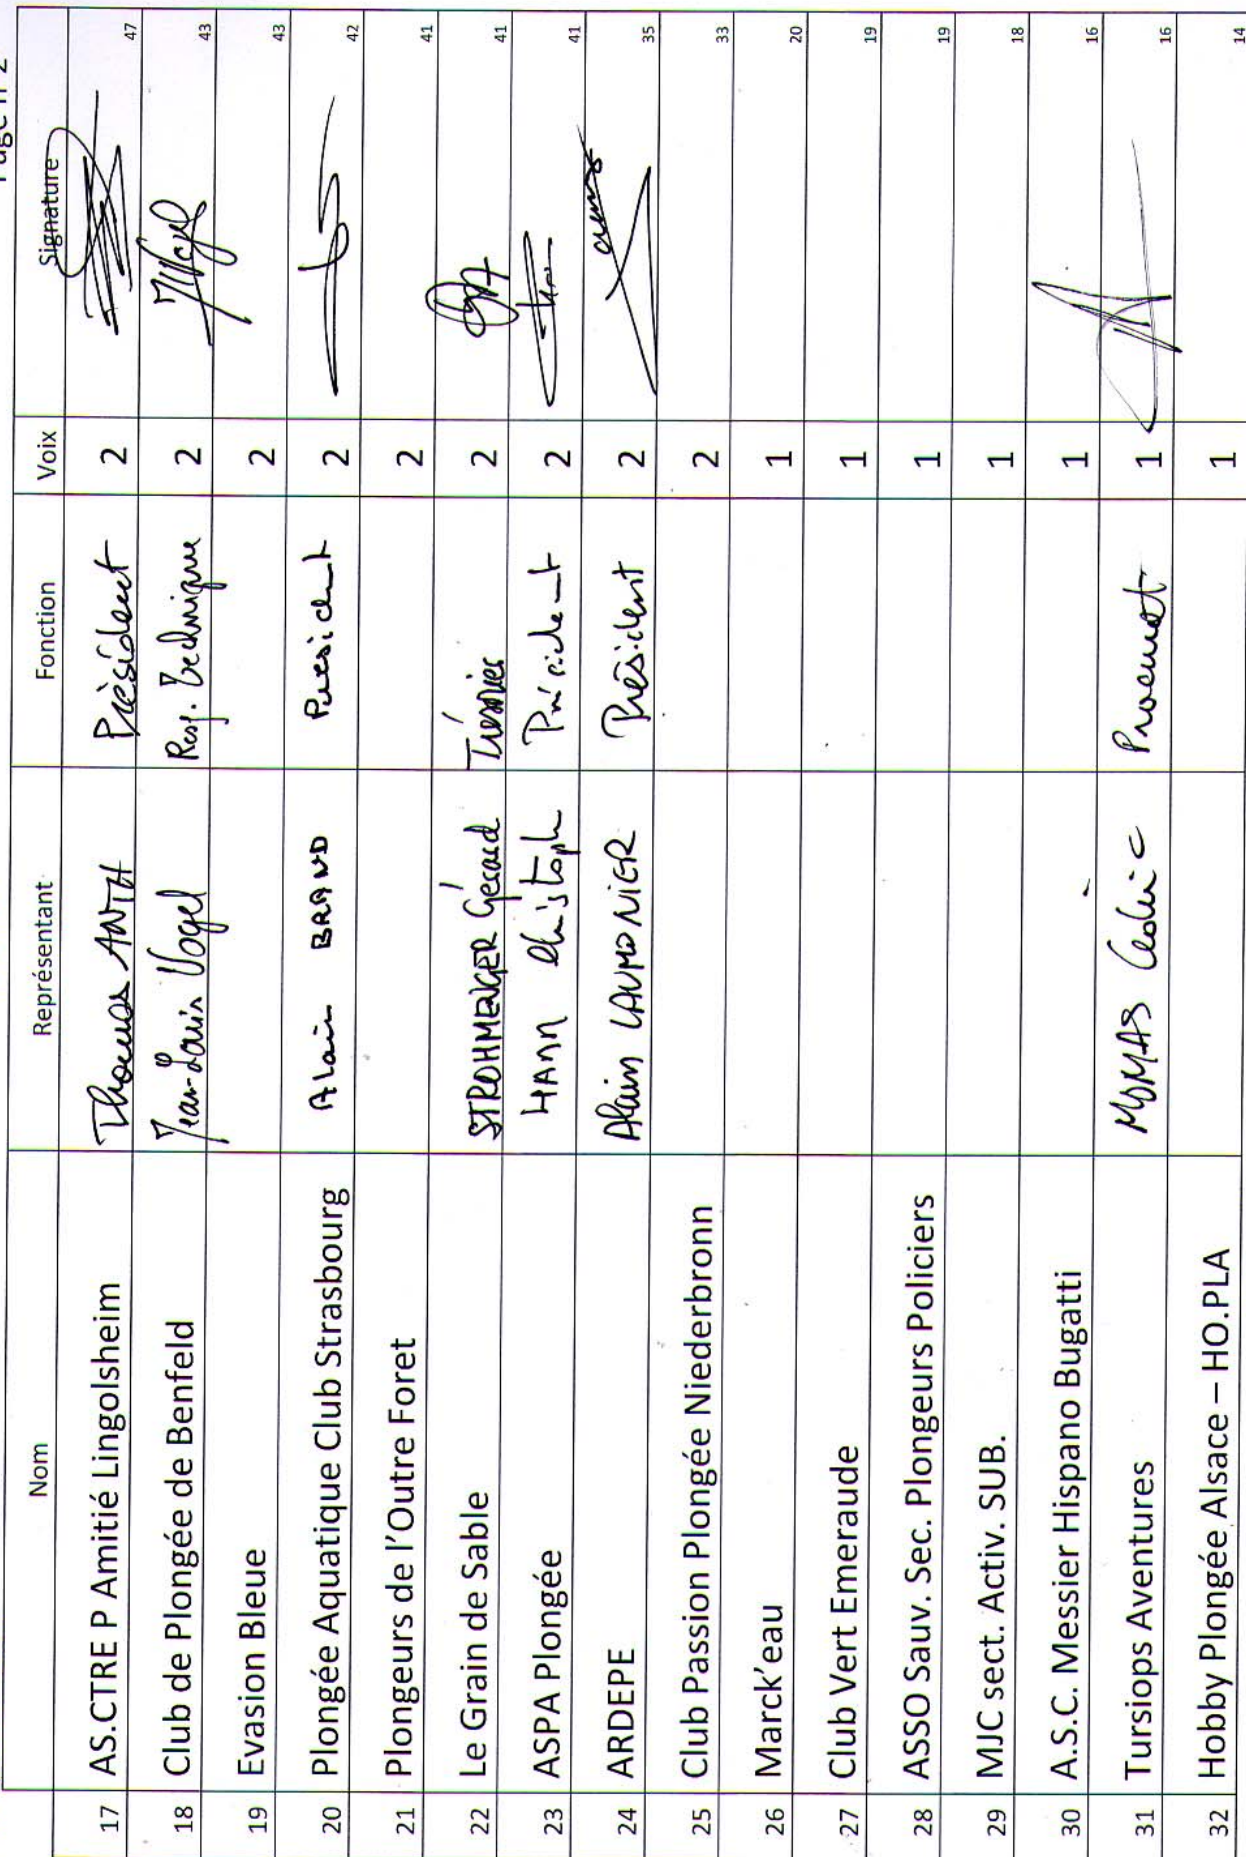 Page n°2
Nom Représentant Fonction Voix Signature
17 AS.CTRE P Amitié Lingolsheim Thomas ANTH Président 2 47
18 Club de Plongée de Benfeld Jean-Louis Vogel Resp. Technique 2 43
19 Evasion Bleue 2 43
20 Plongée Aquatique Club Strasbourg Alain BRAND President 2 42
21 Plongeurs de l'Outre Foret 2 41
22 Le Grain de Sable STROHMENGER Gérard 2 41
23 ASPA Plongée HANN Christoph Président 2 41
24 ARDEPE Alain LAUMONIER Président 2 35
25 Club Passion Plongée Niederbronn 2 33
26 Marck'eau 1 20
27 Club Vert Emeraude 1 19
28 ASSO Sauv. Sec. Plongeurs Policiers 1 19
29 MJC sect. Activ. SUB. 1 18
30 A.S.C. Messier Hispano Bugatti 1 16
31 Tursiops Aventures MOMAS Cédric 1 16
32 Hobby Plongée Alsace – HO.PLA 1 14